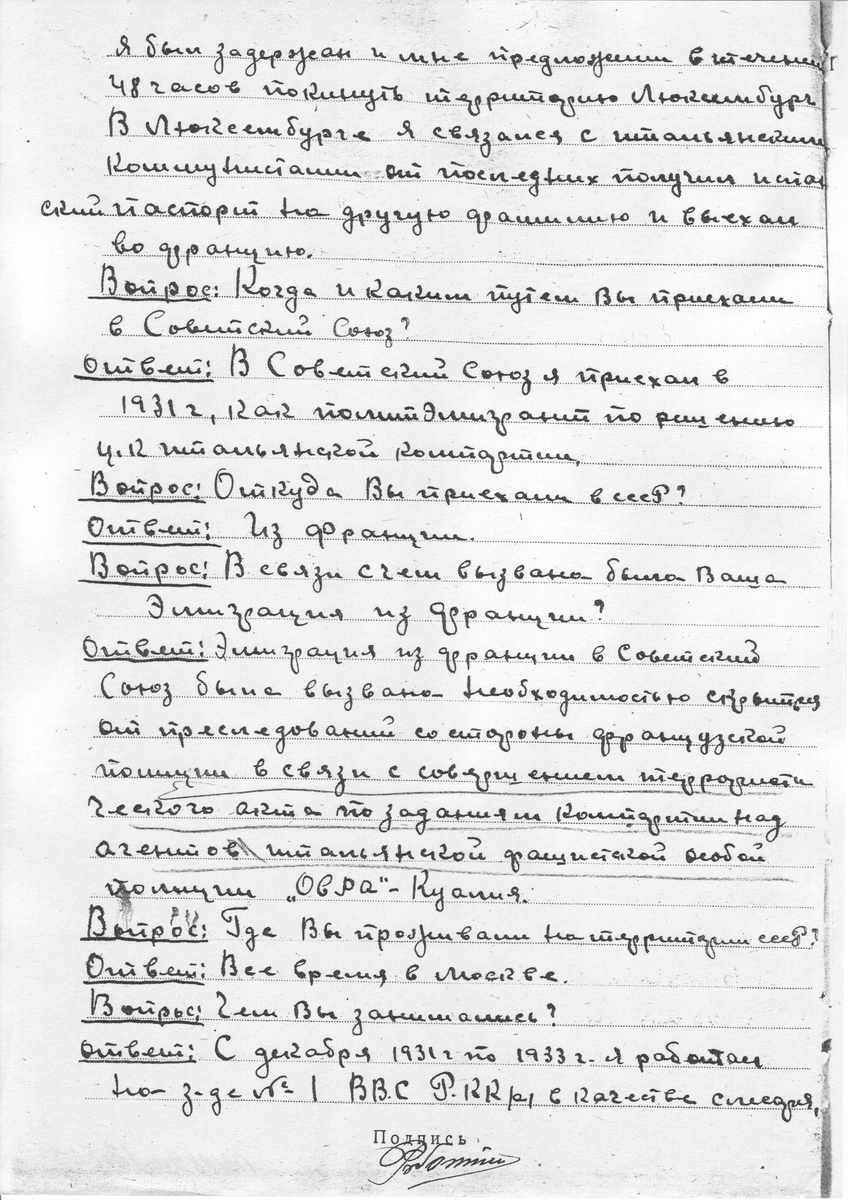 я был задержан и мне предложили в течении
48 часов покинуть территорию Люксембург
В Люксембурге я связался с итальянскими
коммунистами от последних получил испан
ский паспорт на другую фамилию и выехал
во Францию.
Вопрос: Когда и каким путем Вы приехали
в Советский Союз?
Ответ: В Советский Союз я приехал в
1931 г, как политэмигрант по решению
ц.к итальянской компартии,
Вопрос: Откуда Вы приехали в СССР?
Ответ: Из Франции.
Вопрос: В связи с чем вызвана была Ваша
Эмиграция из Франции?
Ответ: Эмиграция из Франции в Советский
Союз была вызвана необходимостью скрытся
от преследований со стороны французской
полиции в связи с совершением террористи
ческого акта по заданиям компартии над
агентов итальянской фашистской особой
полиции „ОВРА"-
Вопрос: Где Вы проживали на территории СССР?
Ответ: Все время в Москве.
Вопрос: Чем Вы занимались?
Ответ: С декабря 1931 г по 1933 г. я работал
на з-де № 1 ВВ.С Р.ККА в качестве слесаря,
Подпись